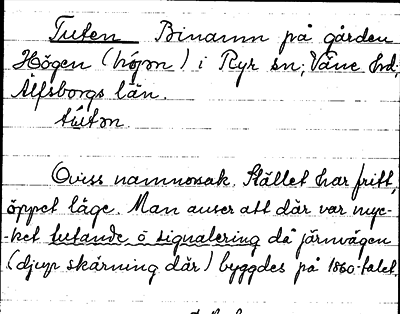 Tuten Binamn på gården
Högen (hǿjən) i Ryr sn, Väne hd,
Älfsborgs län.
tútən.
Oviss namnorsak. Stället har fritt,
öppet läge. Man anser att där var myc-
-ket tutande o signalering då järnvägen
(djup skärning där) byggdes på 1860-talet.